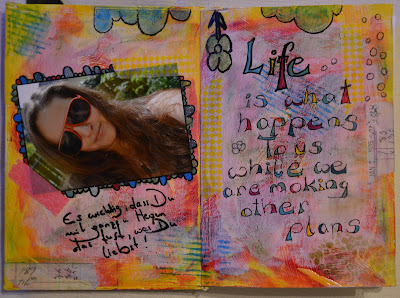 Es wichtig, dass Du
mit ganzem
das tust, was Du
liebst!
Life
is what
happens
to us
while we
are making
other
plans